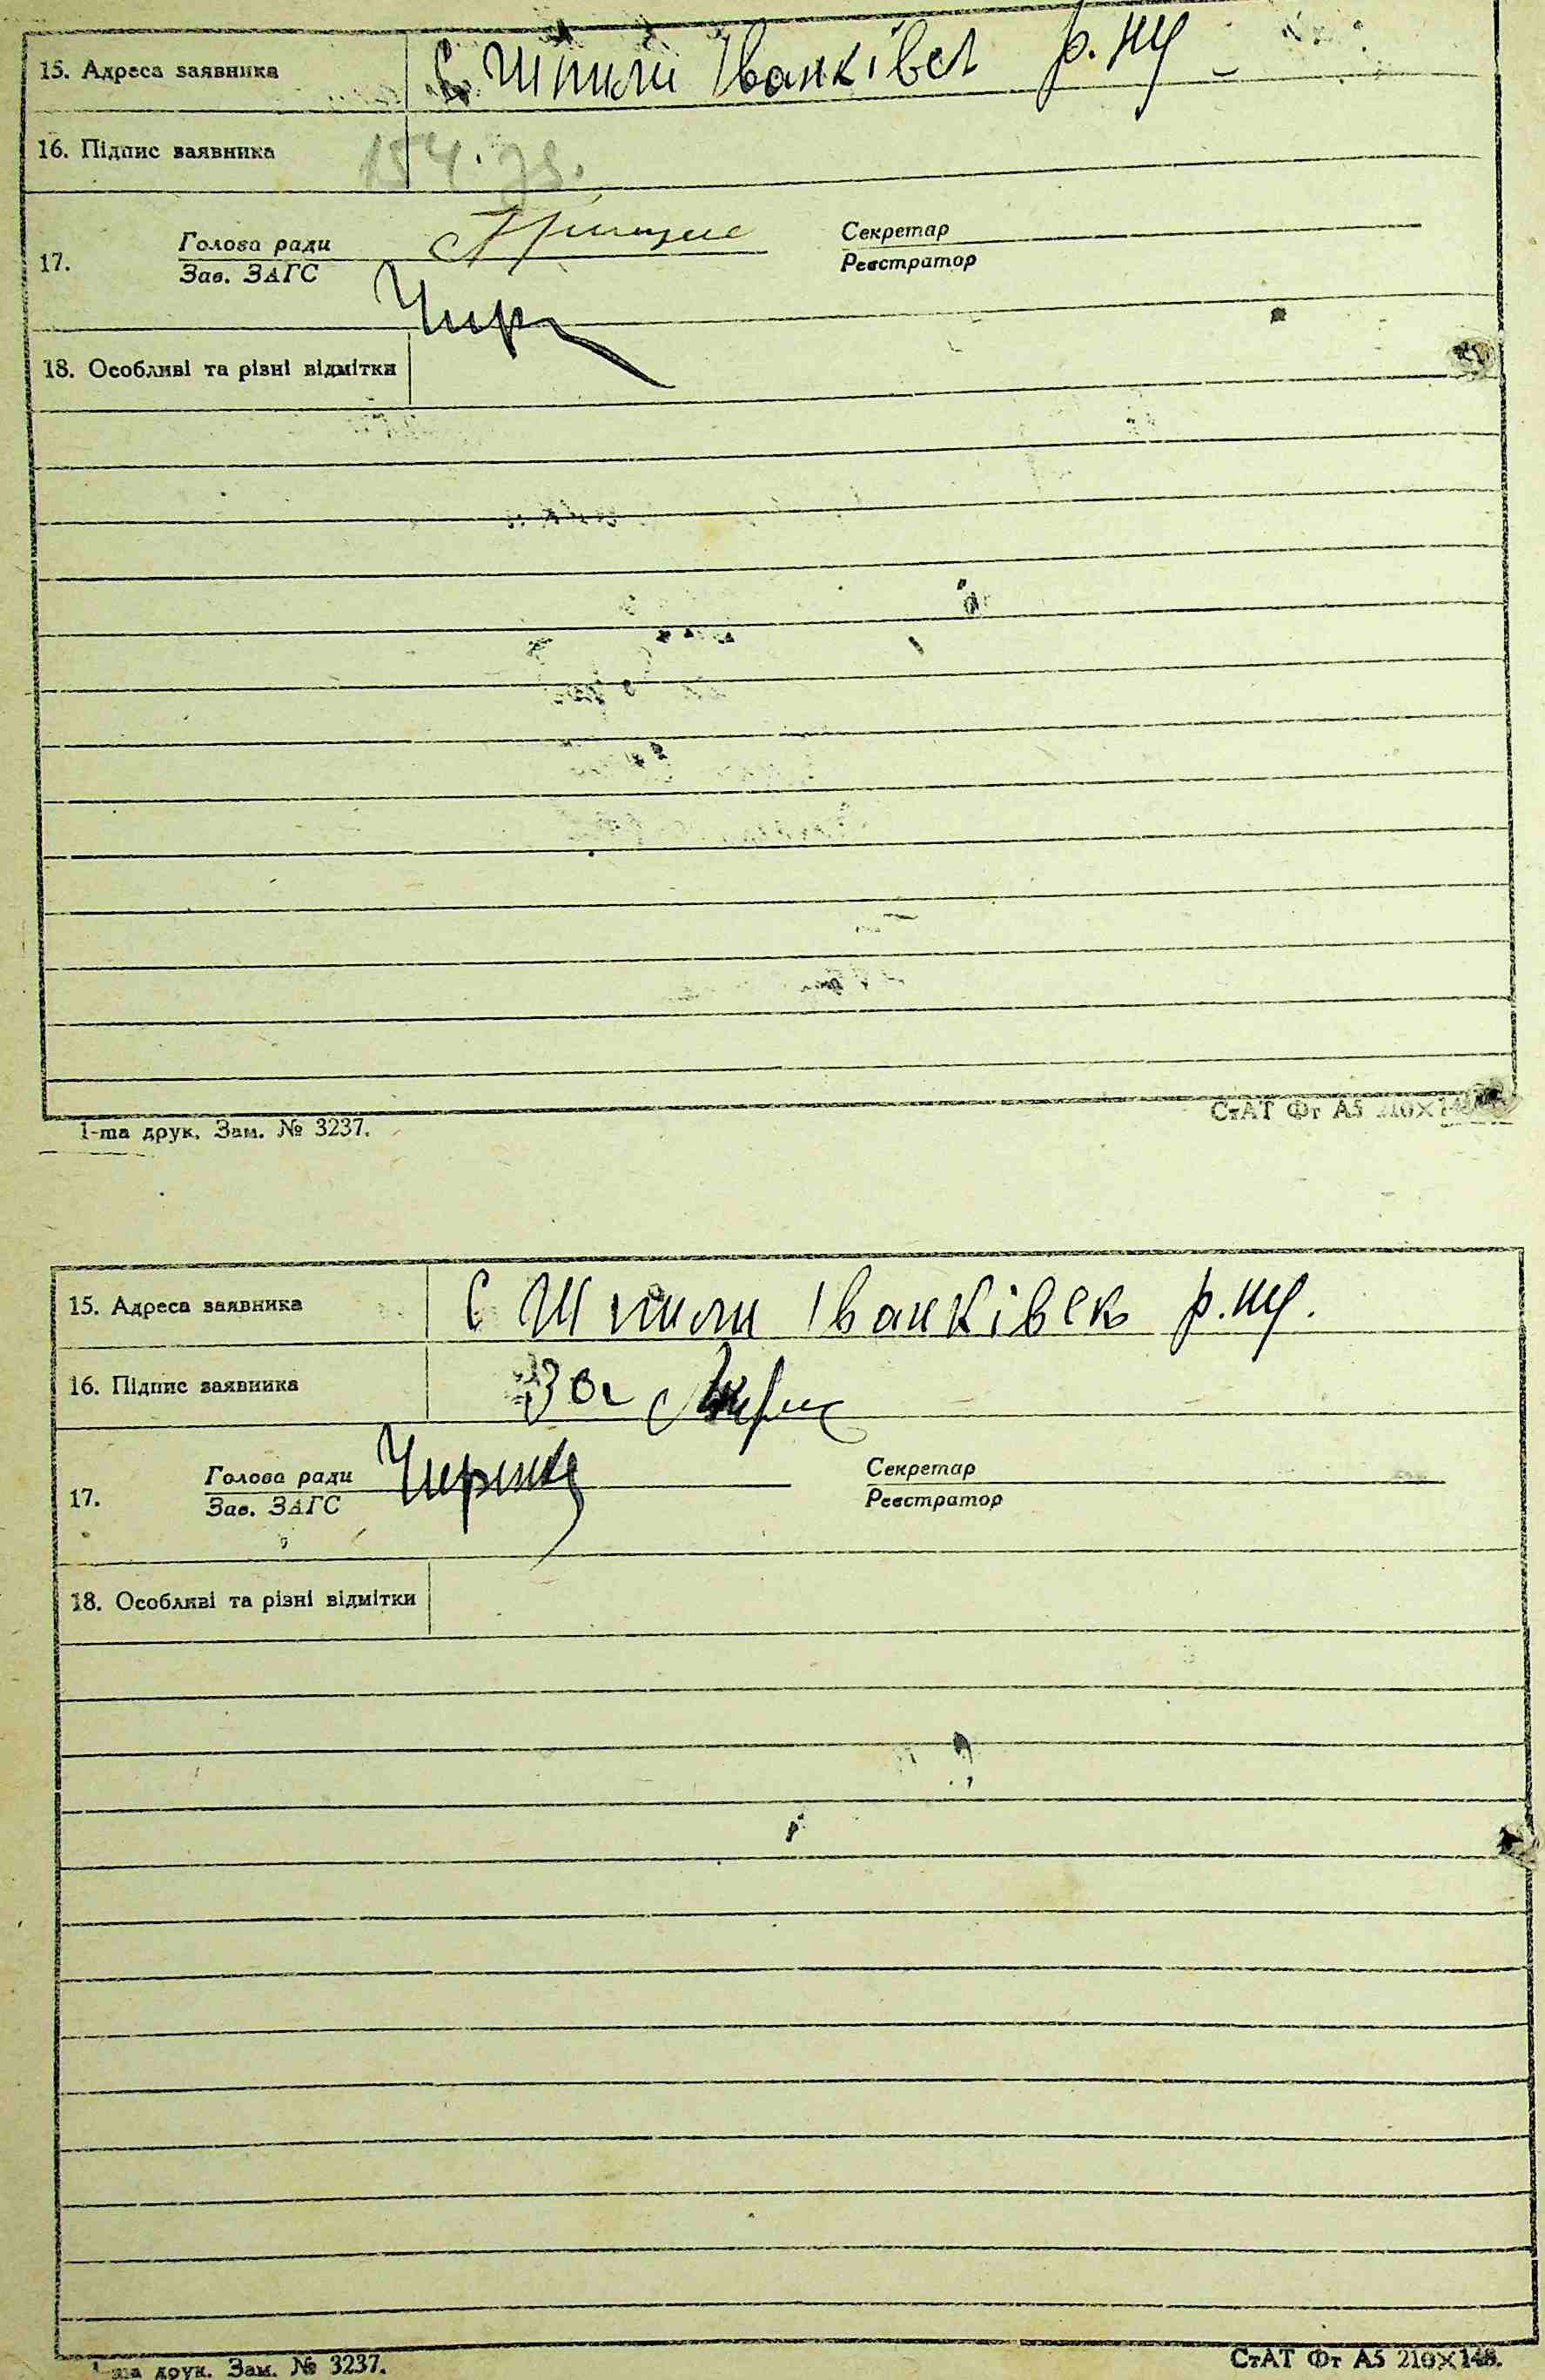 15. Адреса заявника С. Шпилі Іванківск р.ну
16. Підпис заявника 154. зв.
17. Голова ради Секретар
Зав. ЗАГС Реєстратор
18. Особливі та різні відмітки
1-ша друк. Зам. № 3237. СтАТ Фт А5 210×148.
15. Адреса заявника С Шпили Іванківск р.ну.
16. Підпис заявника За
17. Голова ради Секретар
Зав. ЗАГС Реєстратор
18. Особливі та різні відмітки
1-ша друк. Зам. № 3237. СтАТ Фт А5 210×148.